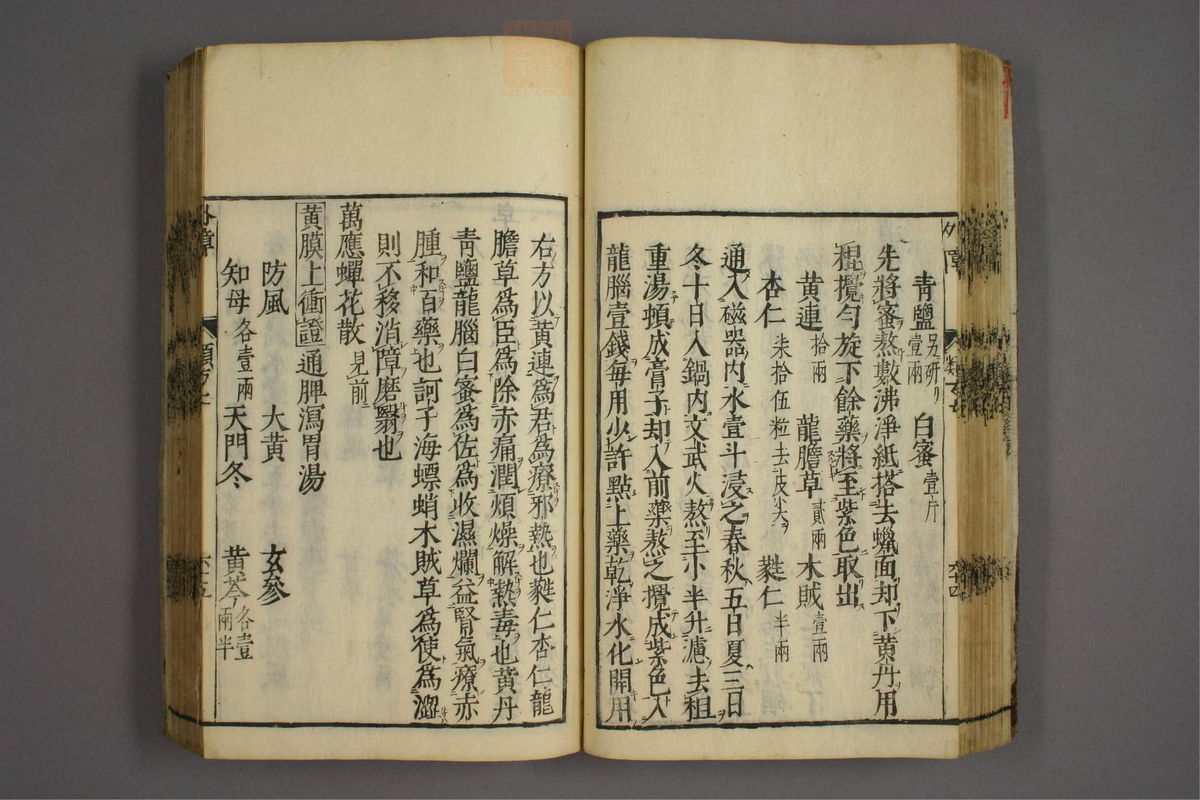 青鹽另研壹兩　白蜜壹斤
先將蜜熬數沸淨紙搭去蠟面却下黃丹用
棍攪勻旋下餘藥將至紫色取出
黃連拾兩　龍膽草貳兩　木賊壹兩
杏仁柒拾伍粒去皮尖　蕤仁半兩
通入磁器內水壹斗浸之春秋五日夏三日
冬十日入鍋內文武火熬至小半升濾去柤
重湯頓成膏子却入前藥熬之攪成紫色入
龍腦壹錢每用少許點上藥乾淨水化開用
右方以黃連爲君爲療邪熱也蕤仁杏仁龍
膽草爲臣爲除赤痛潤煩燥解熱毒也黃丹
青鹽龍腦白蜜爲佐爲收濕爛益腎氣療赤
腫和百藥也訶子海螵蛸木賊草爲使爲澀
則不移消障磨翳也
萬應蟬花散見前
黃膜上衝證通脾瀉胃湯
防風　大黃　玄參
知母各壹兩　天門冬　黃芩各壹兩半
外障
六十五